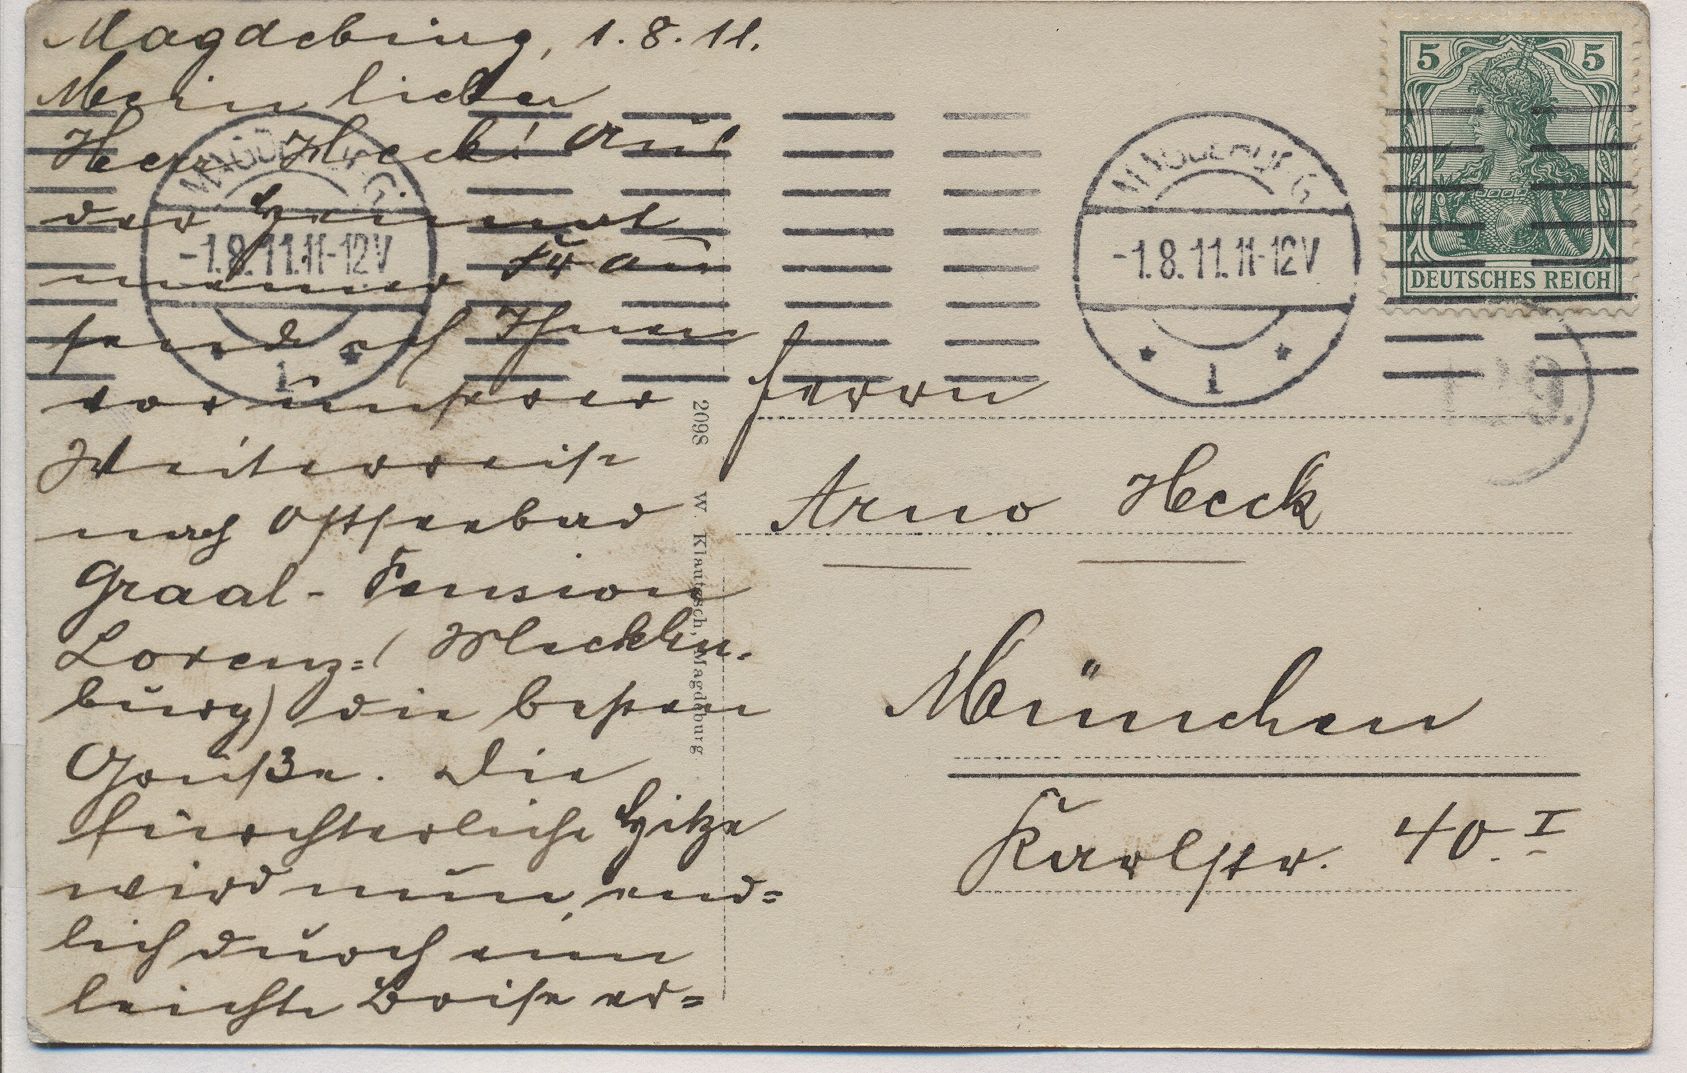 Magdeburg, 1.8.11.
Mein lieber
Herr Heck! Aus
der Heimat
meiner Frau
sende ich Ihnen
vor unserer
Weiterreise
nach Ostseebad
Graal - Pension
Lorenz = (Mecklen-
burg) die besten
Grüße. Die
fürchterliche Hitze
wird nun, end=
lich durch eine
leichte Brise er=
MAGDEBURG
-1.8.11.11-12V
* 1 *
MAGDEBURG
-1.8.11.11-12V
* 1 *
5 5
DEUTSCHES REICH
2098 W. Klautzsch, Magdeburg
Herrn
Arno Heck
München
Karlstr. 40 I